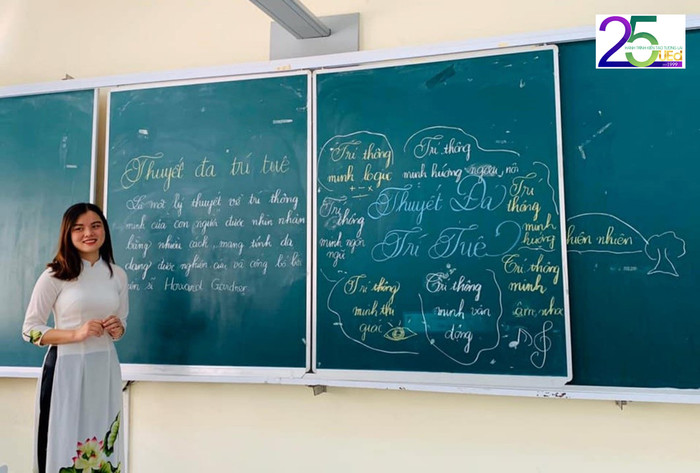 Thuyết đa trí tuệ
Là một lý thuyết về trí thông
minh của con người được nhìn nhận
bằng nhiều cách, mang tính đa
dạng được nghiên cứu và công bố bởi
Howard Gardner.
Trí thông
minh logic
+ - ×
Trí thông
minh hướng ngoại, nội
Trí
thông
minh ngôn
ngữ
Thuyết Đa
Trí Tuệ
Trí
thông
minh
hướng
thiên nhiên
Trí thông
minh thị
giác
Trí thông
minh vận
động
Trí thông
minh
âm nhạc
25
UEd